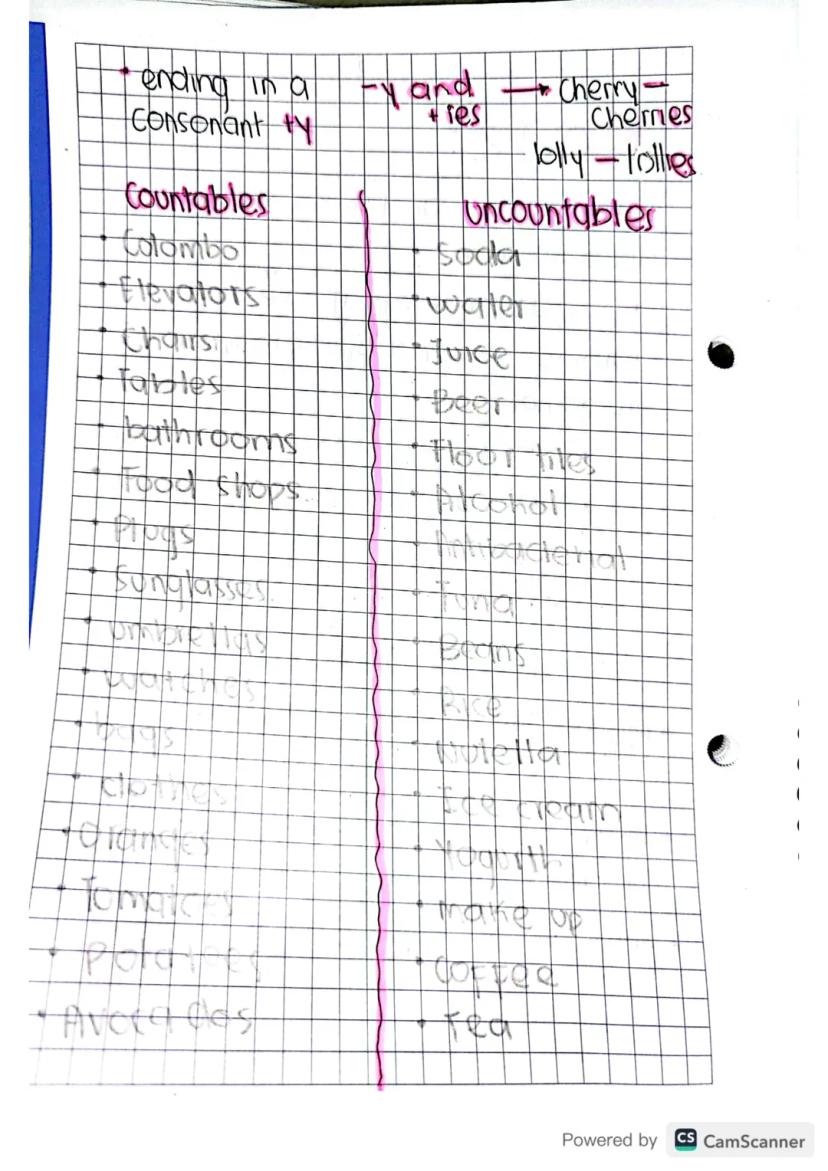 • ending in a -y and → cherry -
consonant +y + ies cherries
lolly - lollies
Countables
• Colombo
• Elevators
• Chairs
• Tables
• bathrooms
• Food shops
• Plugs
• Sunglasses
• umbrellas
• watches
• bags
• clothes
• Oranges
• Tomatoes
• Potatoes
• Avocados
Uncountables
• Soda
• water
• Juice
• Beer
• Floor tiles
• Alcohol
• Antibacterial
• Tuna
• Beans
• Rice
• Nutella
• Ice cream
• Yogurth
• make up
• coffee
• Tea
Powered by CS CamScanner